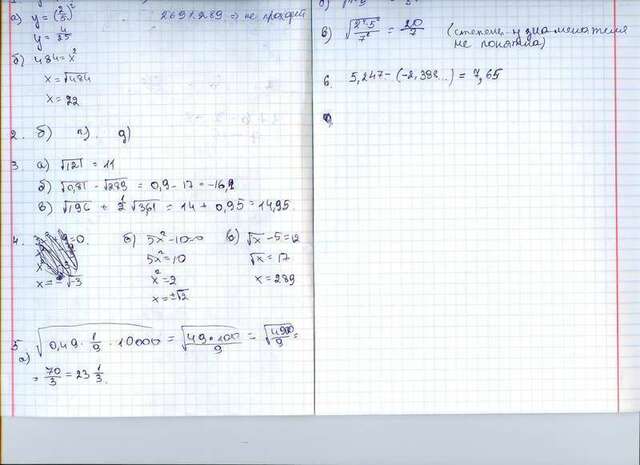 а) y = (2/5)²
y = 4/25
б) 484 = x²
x = √484
x = 22
2. б) д)
3. а) √121 = 11
б) √0,81 - √289 = 0,9 - 17 = -16,1
в) √196 + √361 = 14 + 0,95 = 14,95.
4.
б) 5x² - 10 = 0
5x² = 10
x² = 2
x = ±√2
в) √x - 5 = 12
√x = 17
x = 289
5 а) √0,49 · 1/9 · 10000 = √49·100/9 = √4900/9 =
= 70/3 = 23 1/3.
в) = 20/7 (степень у знаменателя
не понятна)
6. 5,247 - (-2,398...) = 7,65